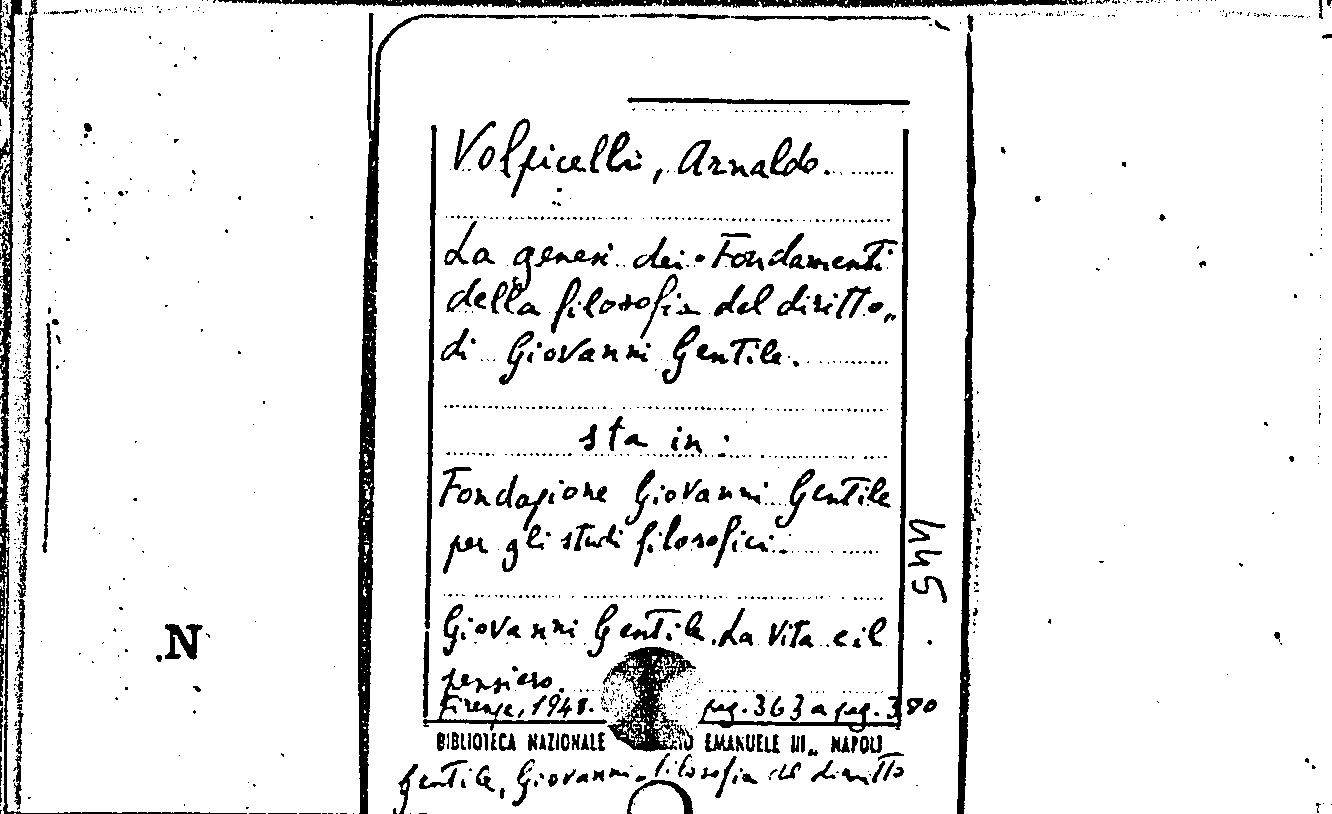 Volpicelli, Arnaldo.
La genesi dei "Fondamenti
della filosofia del diritto"
di Giovanni Gentile.
sta in:
Fondazione Giovanni Gentile
per gli studi filosofici.
445
Giovanni Gentile. La vita e il
pensiero.
Firenze, 1948. pag. 363 a pag. 380
BIBLIOTECA NAZIONALE EMANUELE III„ NAPOLI
Gentile, Giovanni - filosofia del diritto
.N